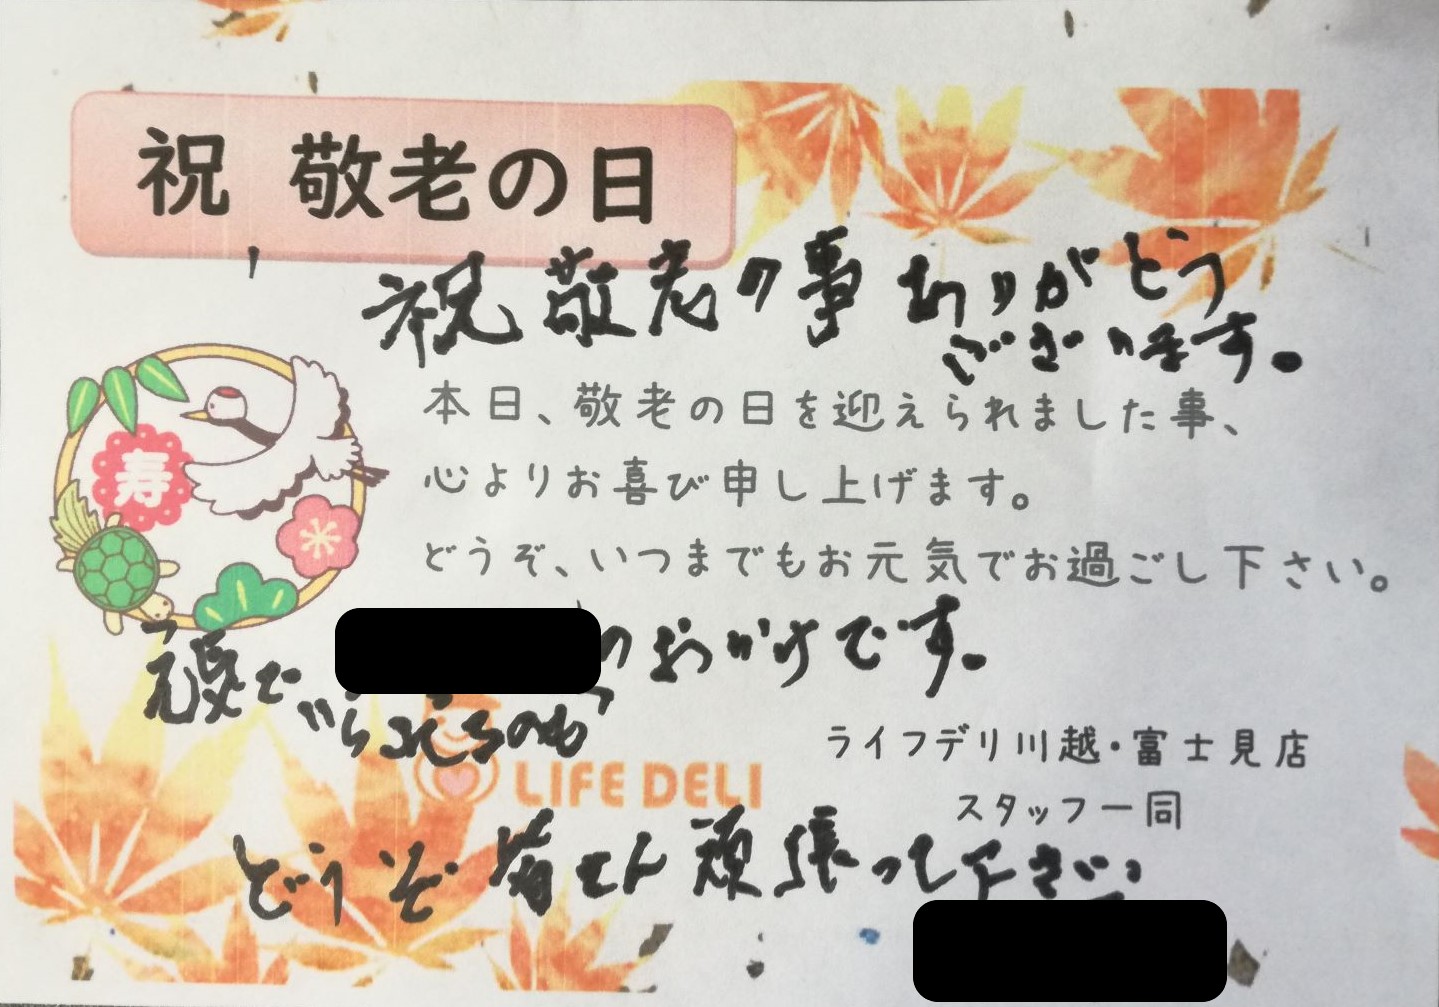 祝 敬老の日
祝 敬老の事 ありがとう
ございます。
本日、敬老の日を迎えられました事、
心よりお喜び申し上げます。
寿
どうぞ、いつまでもお元気でお過ごし下さい。
のおかげです。
元気で
いられるのも
ライフデリ川越・富士見店
LIFE DELI
スタッフ一同
どうぞ 皆さん 頑張って下さい